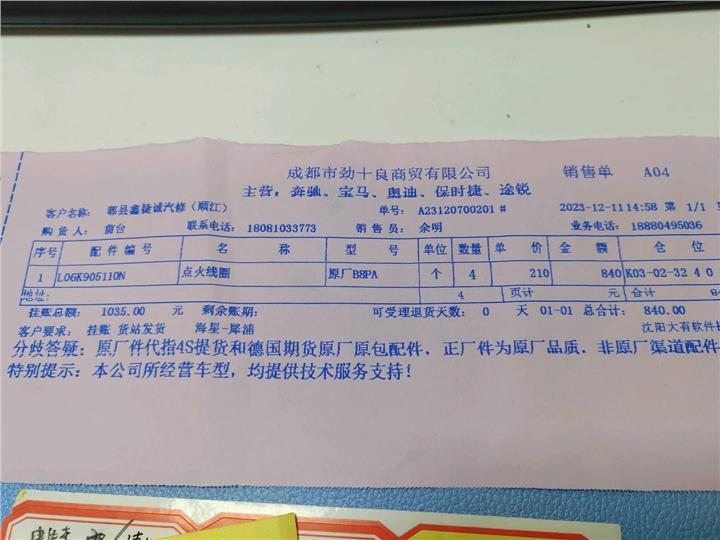 成都市劲十良商贸有限公司 销售单 A04
主营：奔驰、宝马、奥迪、保时捷、途锐
客户名称： 郫县鑫捷诚汽修（顺江） 单号： A23120700201# 2023-12-11 14:58 第 1/1
购 货 人： 前台 联系电话： 18081033773 销 售 员： 余明 业务电话： 18880495036
序号 配 件 编 号 名 称 型 号 单位 数量 单 价 金 额 仓 位
1 L06K905110N 点火线圈 原厂B8PA 个 4 210 840 K03-02-32 4 0
地址： 4 页计 元 合计
挂账总额： 1035.00 元 剩余账期： 可受理退货天数： 0 天 01-01 总合计： 840.00
客户要求： 挂账 货站发货 海星-犀浦 沈阳大有软件
分歧答疑：原厂件代指4S提货和德国期货原厂原包配件，正厂件为原厂品质，非原厂渠道配件
特别提示：本公司所经营车型，均提供技术服务支持！